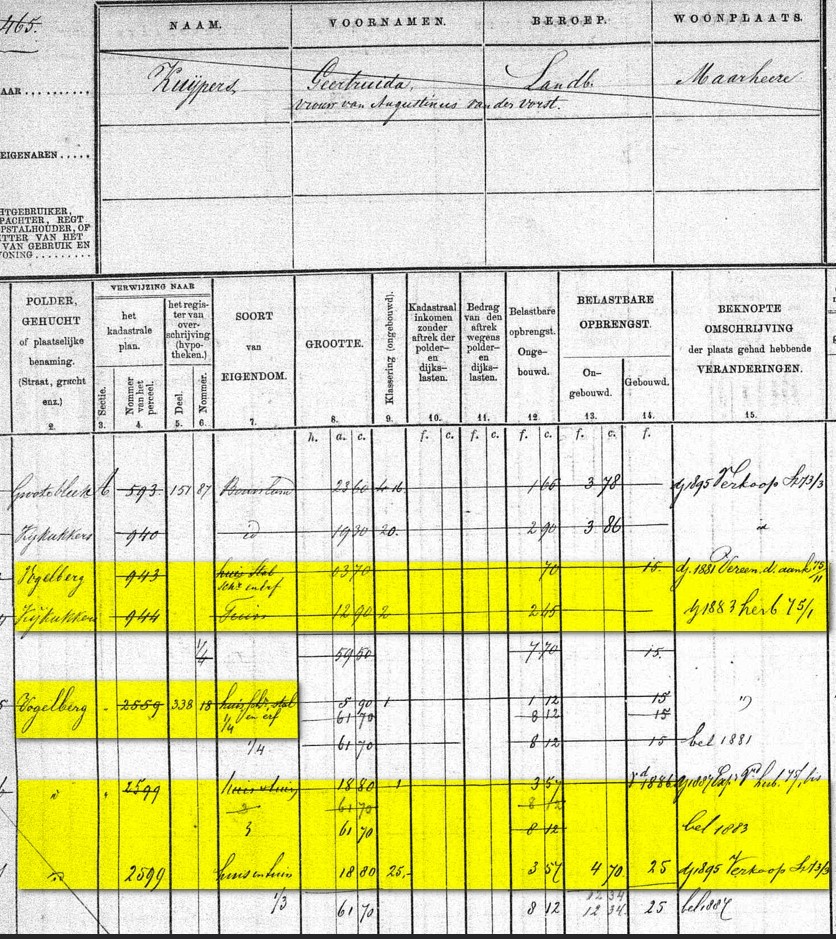 465.
NAAM. VOORNAMEN. BEROEP. WOONPLAATS.
AAR
Kuijpers, Geertruida, Landb. Maarheeze
vrouw van Augustinus van der Vorst.
EIGENAREN
HTGEBRUIKER,
PACHTER, REGT
OPSTALHOUDER, OF
ITTER VAN HET
VAN GEBRUIK EN
VONING
POLDER,
GEHUCHT
of plaatselijke
benaming.
(Straat, gracht
enz.)
2.
VERWIJZING NAAR
het
kadastrale
plan.
Sectie.
3.
Nommer
van het
perceel.
4.
het regis-
ter van
over-
schrijving
(hypo-
theken.)
Deel.
5.
Nommer.
6.
SOORT
van
EIGENDOM.
7.
GROOTTE.
8.
Klassering (ongebouwd).
9.
Kadastraal
inkomen
zonder
aftrek der
polder-
en
dijks-
lasten.
10.
Bedrag
van den
aftrek
wegens
polder-
en
dijks-
lasten.
11.
Belastbare
opbrengst.
Onge-
bouwd.
12.
BELASTBARE
OPBRENGST.
On-
gebouwd.
13.
Gebouwd.
14.
BEKNOPTE
OMSCHRIJVING
der plaats gehad hebbende
VERANDERINGEN.
15.
h. a. c. f. c. f. c. f. c. f. c. f.
A 593 151 87 Bouwland 23 60 1 65 3 78 dj 1895 Verkoop
940 id 19 30 20. 2 90 3 86 id
Vogelberg 943 huis stal 03 70 70 15. dj. 1881 Vereen.
en erf
944 Tuin 12 90 2 2 45 dj 1883 herb 75/1
1/4 59 50 7 70 15.
Vogelberg 2559 338 18 huis stal 5 90 1 1 12 15
1/4 en erf 61 70 8 12 15
1/4 61 70 8 12 15 bel 1881
2599 18 80 1 3 57 1886
61 70 8 12
61 70 8 12 bel 1883
2599 huis en tuin 18 80 25,- 3 57 4 70 25 dj 1895 Verkoop
12 34
1/3 61 70 8 12 12 34 25 bel 1887